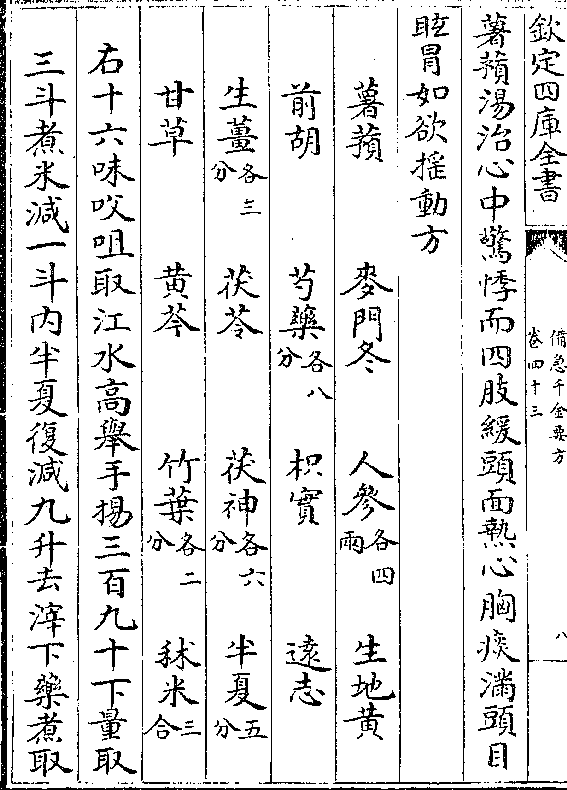 欽定四庫全書
備急千金要方
卷四十三
八
薯蕷湯治心中驚悸而四肢緩頭面熱心胸痰滿頭目
眩冒如欲搖動方
薯蕷 麥門冬 人參各四兩 生地黄
前胡 芍藥各八分 枳實 遠志
生薑各三分 茯苓 茯神各六分 半夏五分
甘草 黄芩 竹葉各二分 秫米三合
右十六味㕮咀取江水高舉手揚三百九十下量取
三斗煮米減一斗内半夏復減九升去滓下藥煮取